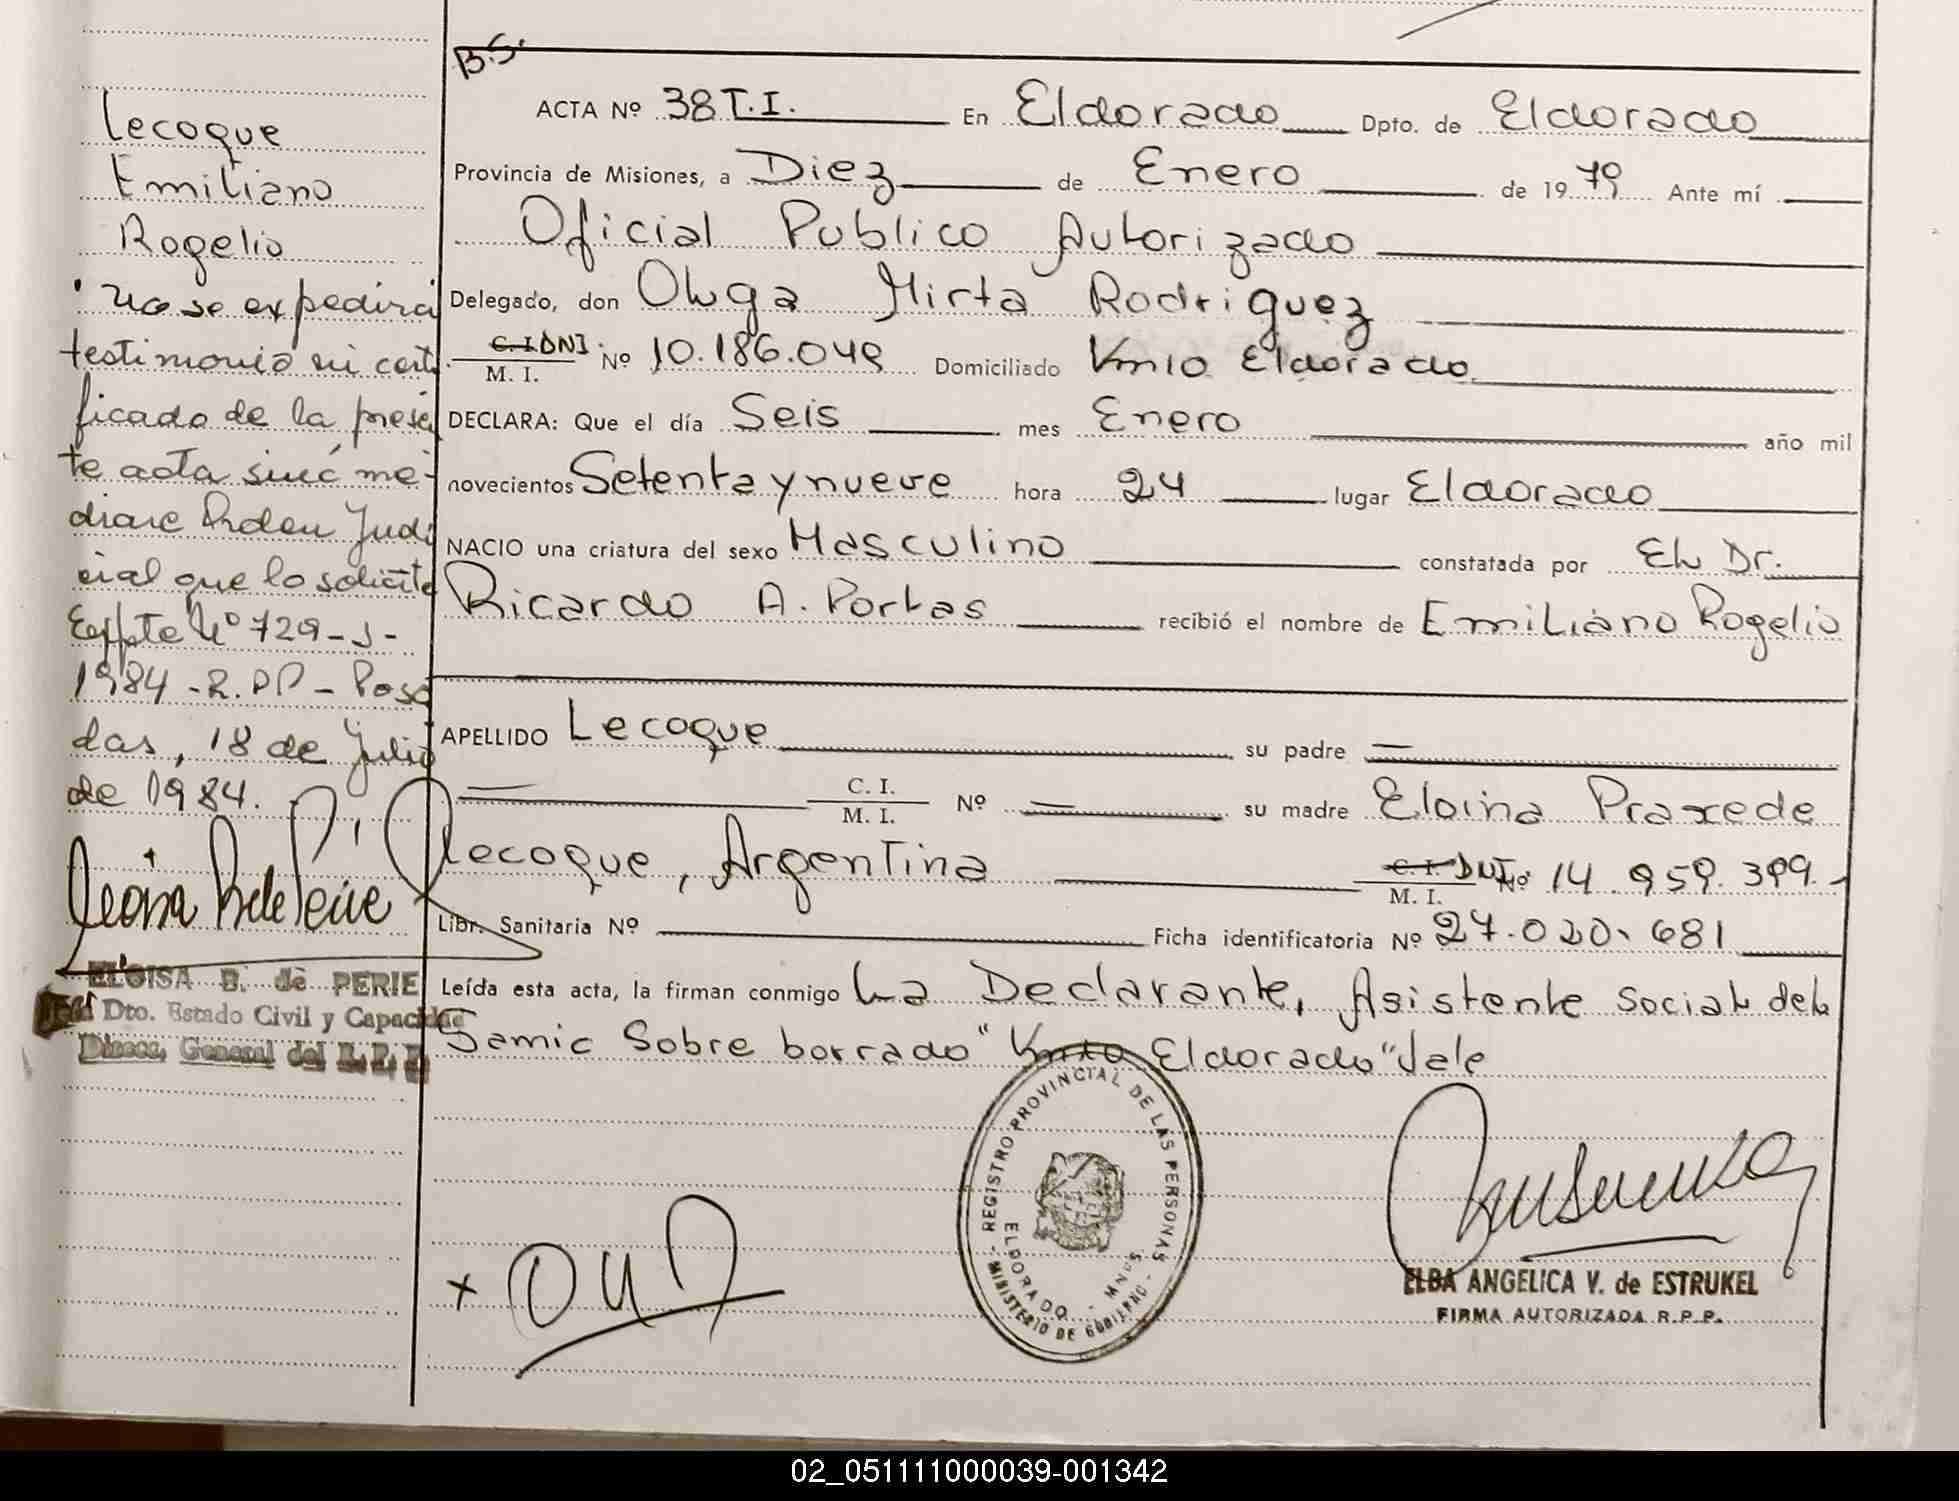 B.S.
Lecoque
Emiliano
Rogelio
no se expedirá
testimonio ni certi
ficado de la presen
te acta sinó me-
diare Orden Judi
cial que lo solicite
Expte Nº 729-J-
1984-R.P.P-Posa
das, 18 de Julio
de 1984.
ELOISA B. de PERIE
Jefa Dto. Estado Civil y Capacidad
Direcc. General del R.P.P.
ACTA Nº 38 T.I. En Eldorado Dpto. de Eldorado
Provincia de Misiones, a Diez de Enero de 1979 Ante mí
Oficial Publico Autorizado
Delegado, don Olga Mirta Rodriguez
C.I. DNI M. I. Nº 10.186.049 Domiciliado Km10 Eldorado
DECLARA: Que el día Seis mes Enero año mil
novecientos Setenta y nueve hora 24 lugar Eldorado
NACIO una criatura del sexo Masculino constatada por El Dr.
Ricardo A. Portas recibió el nombre de Emiliano Rogelio
APELLIDO Lecoque su padre —
— C. I. M. I. Nº — su madre Eloina Praxede
Lecoque, Argentina C.I. DNI M. I. Nº 14.959.399.-
Libr. Sanitaria Nº Ficha identificatoria Nº 27.020.681
Leída esta acta, la firman conmigo La Declarante, Asistente Social del
Samic Sobre borrado "Km10 Eldorado" Vale
REGISTRO PROVINCIAL DE LAS PERSONAS
ELDORADO - MNES
MINISTERIO DE GOBIERNO
ELBA ANGELICA V. de ESTRUKEL
FIRMA AUTORIZADA R.P.P.
02_051111000039-001342